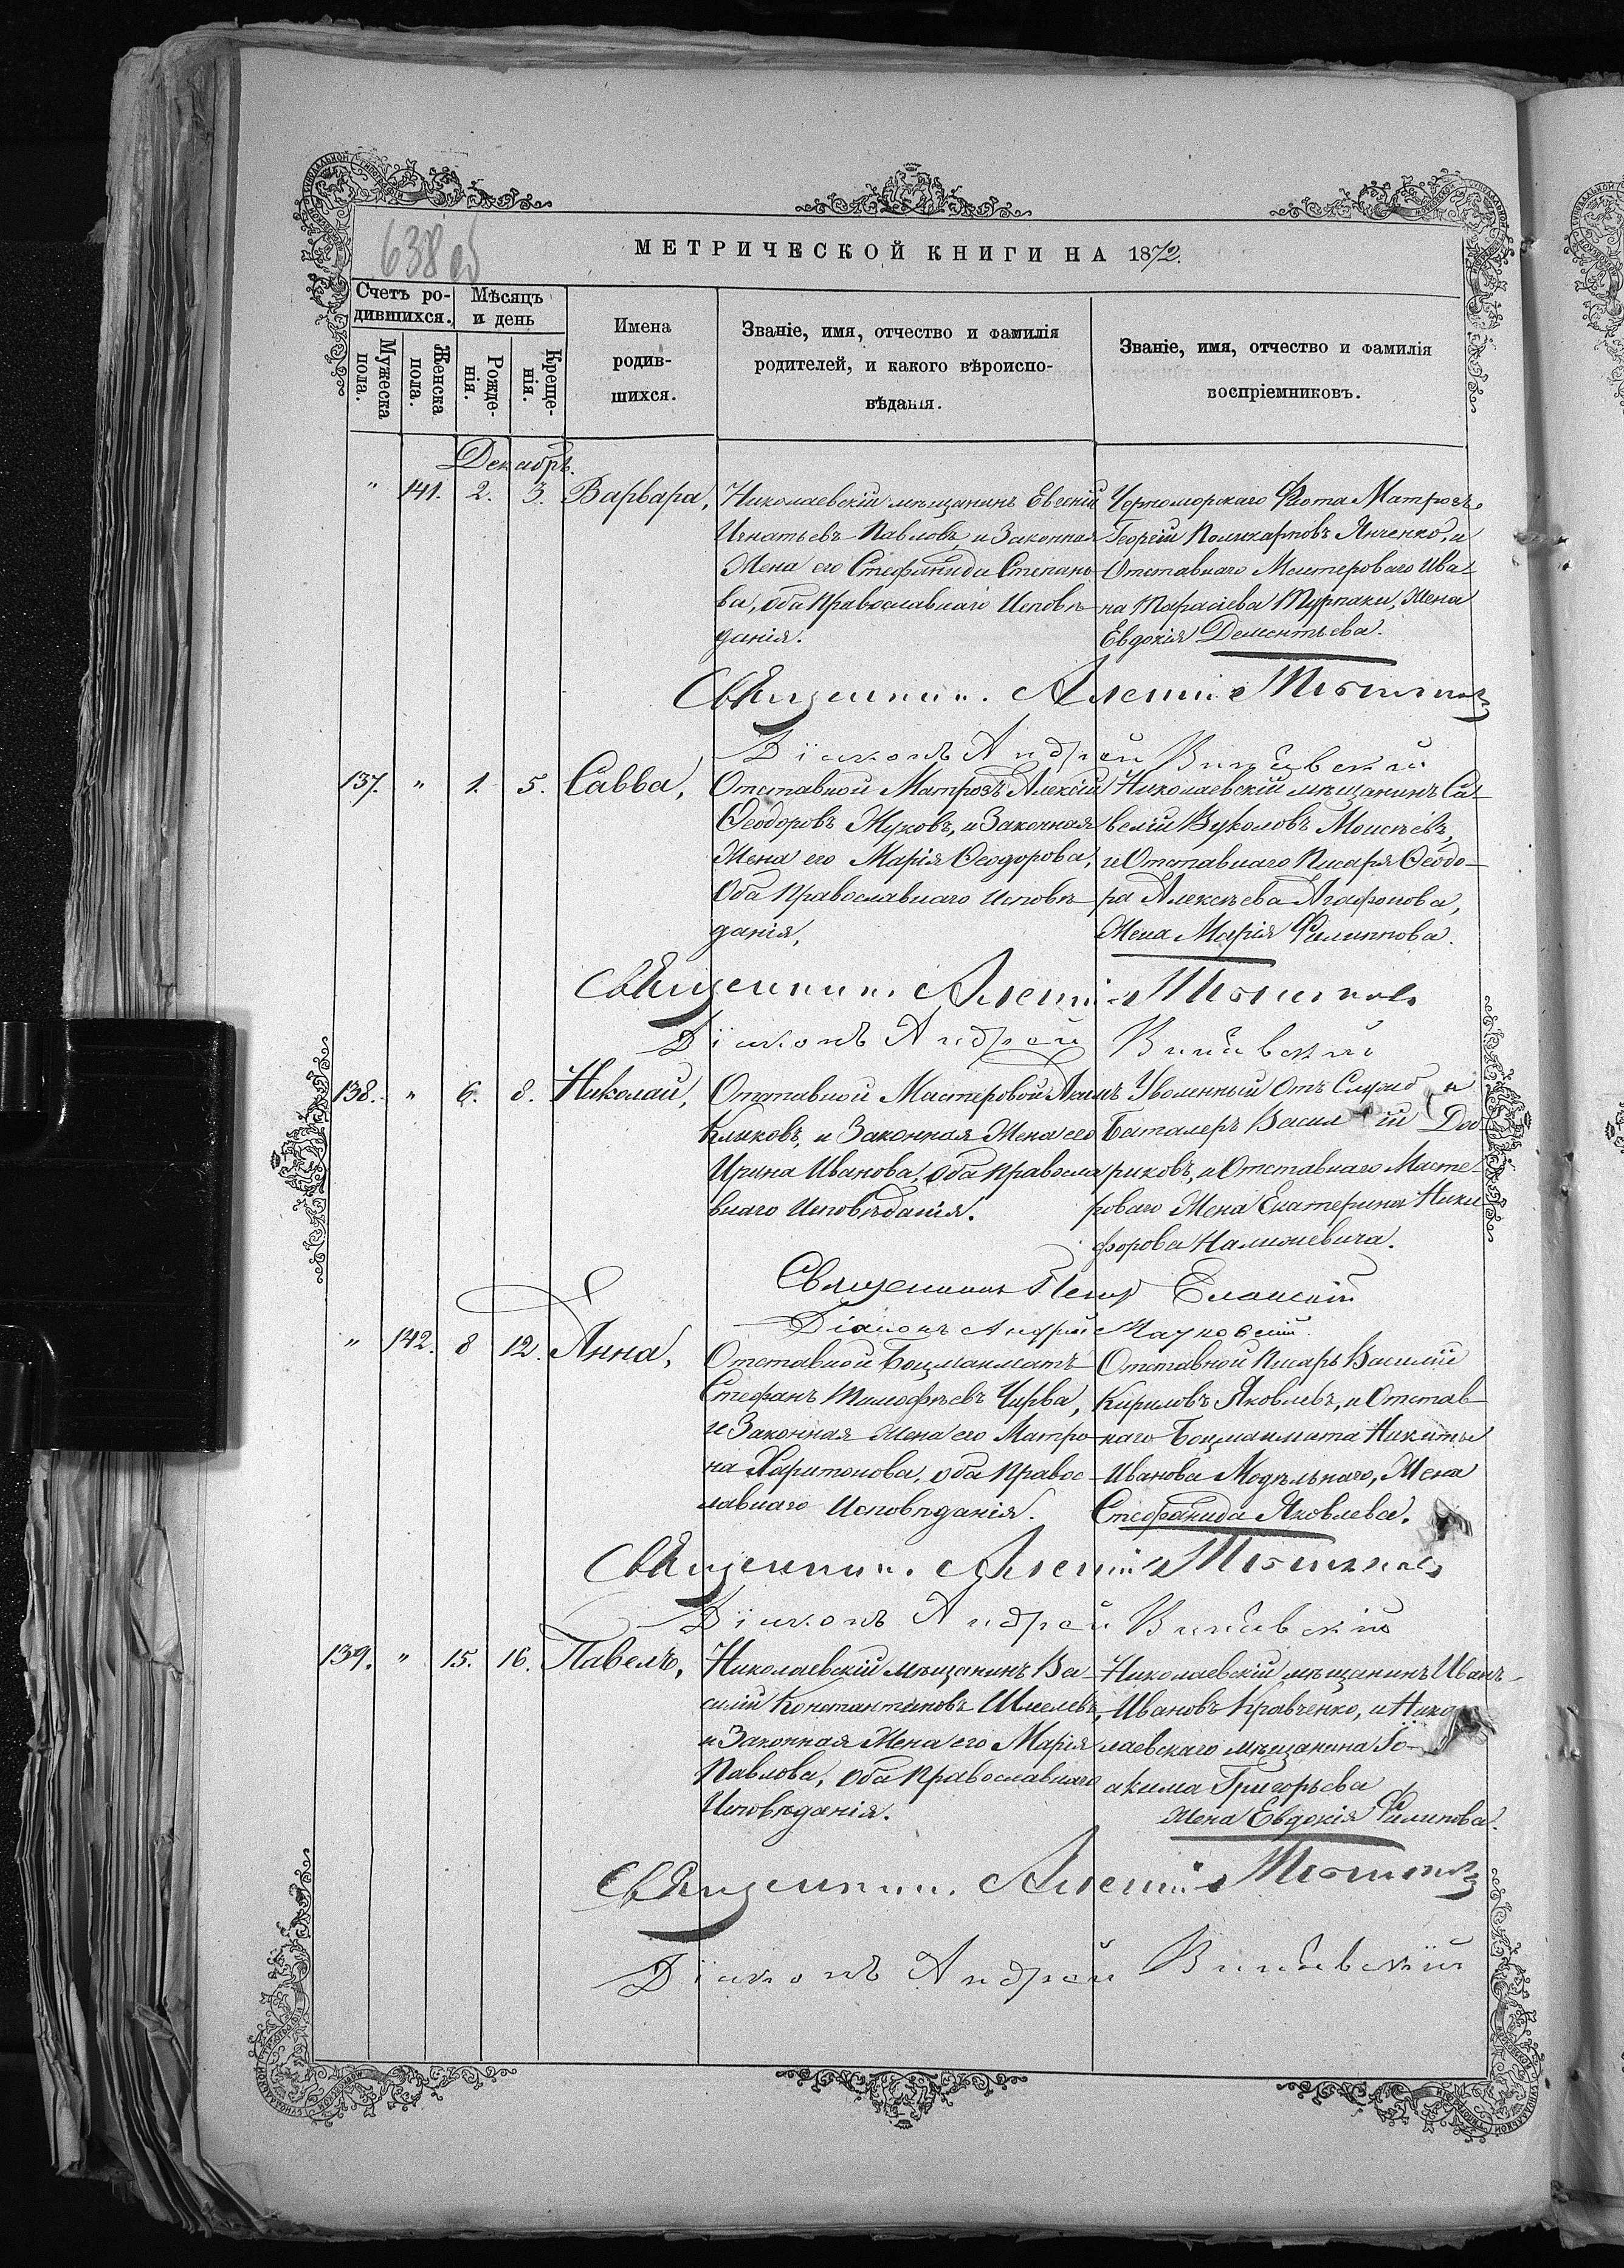 638 об
МЕТРИЧЕСКОЙ КНИГИ НА 1872.
Счетъ ро-
дившихся.
Мѣсяцъ
и день
Мужеска
пола.
Женска
пола.
Рожде-
нія.
Креще-
нія.
Имена
родив-
шихся.
Званіе, имя, отчество и фамилія
родителей, и какого вѣроиспо-
вѣданія.
Званіе, имя, отчество и фамилія
воспріемниковъ.
Декабрь.
" 141. 2. 3. Варвара,
Николаевскій мѣщанинъ Евсѣній
Игнатьевъ Павловъ, и Законная
Жена его Стефанида Степано-
ва, оба Православнаго Исповѣ-
данія.
Черноморскаго Флота Матрозъ
Георгій Поликарповъ Янченко, и
Отставнаго Мастероваго Ива-
на Тарасіева Турпаки, Жена
Евдокія Дементьева.
Священник. Алексій
Діаконъ Андрей
137. " 1. 5. Савва,
Отставной Матрозъ Алексій
Ѳеодоровъ Жуковъ, и Законная
Жена его Марія Ѳеодорова,
Оба Православнаго Исповѣ-
данія,
Николаевскій мѣщанинъ Са-
велій Вуколовъ Моисѣевъ,
и Отставнаго Писаря Ѳеодо-
ра Алексѣева Агафонова,
Жена Марія Филиппова.
Священник. Алексій
Діаконъ Андрей
138. " 6. 8. Николай,
Отставной Мастеровой
Клыковъ, и Законная Жена его
Ирина Иванова, Оба Правосла
внаго Исповѣданія.
Уволенный Отъ Служб ы
Баталеръ Васил ій До
риковъ, и Отставнаго Масте-
роваго Жена Екатерина Ники
форова
Священникъ Петр Еланскій
Діаконъ Андрей
" 142. 8 12. Анна,
Отставной Боцманматъ
Стефанъ Тимофѣевъ Чирва,
и Законная Жена его Матро
на Харитонова, оба Правос-
лавнаго Исповѣданія.
Отставной Писарь Василій
Кириловъ Яковлевъ, и Отстав-
наго Боцманмата Никиты
Иванова Модѣльнаго, Жена
Стефанида Яковлева.
Священник. Алексій
Діаконъ Андрей
139. " 15. 16. Павелъ,
Николаевскій мѣщанинъ Ва-
силій Константиновъ Шмелевъ,
и Законная Жена его Марія
Павлова, Оба Православнаго
Исповѣданія.
Николаевскій мѣщанинъ Иванъ
Ивановъ Кравченко, и Нико
лаевскаго мѣщанина Іо-
акима Григорьева
Жена Евдокія Филипова.
Священник. Алексій
Діаконъ Андрей